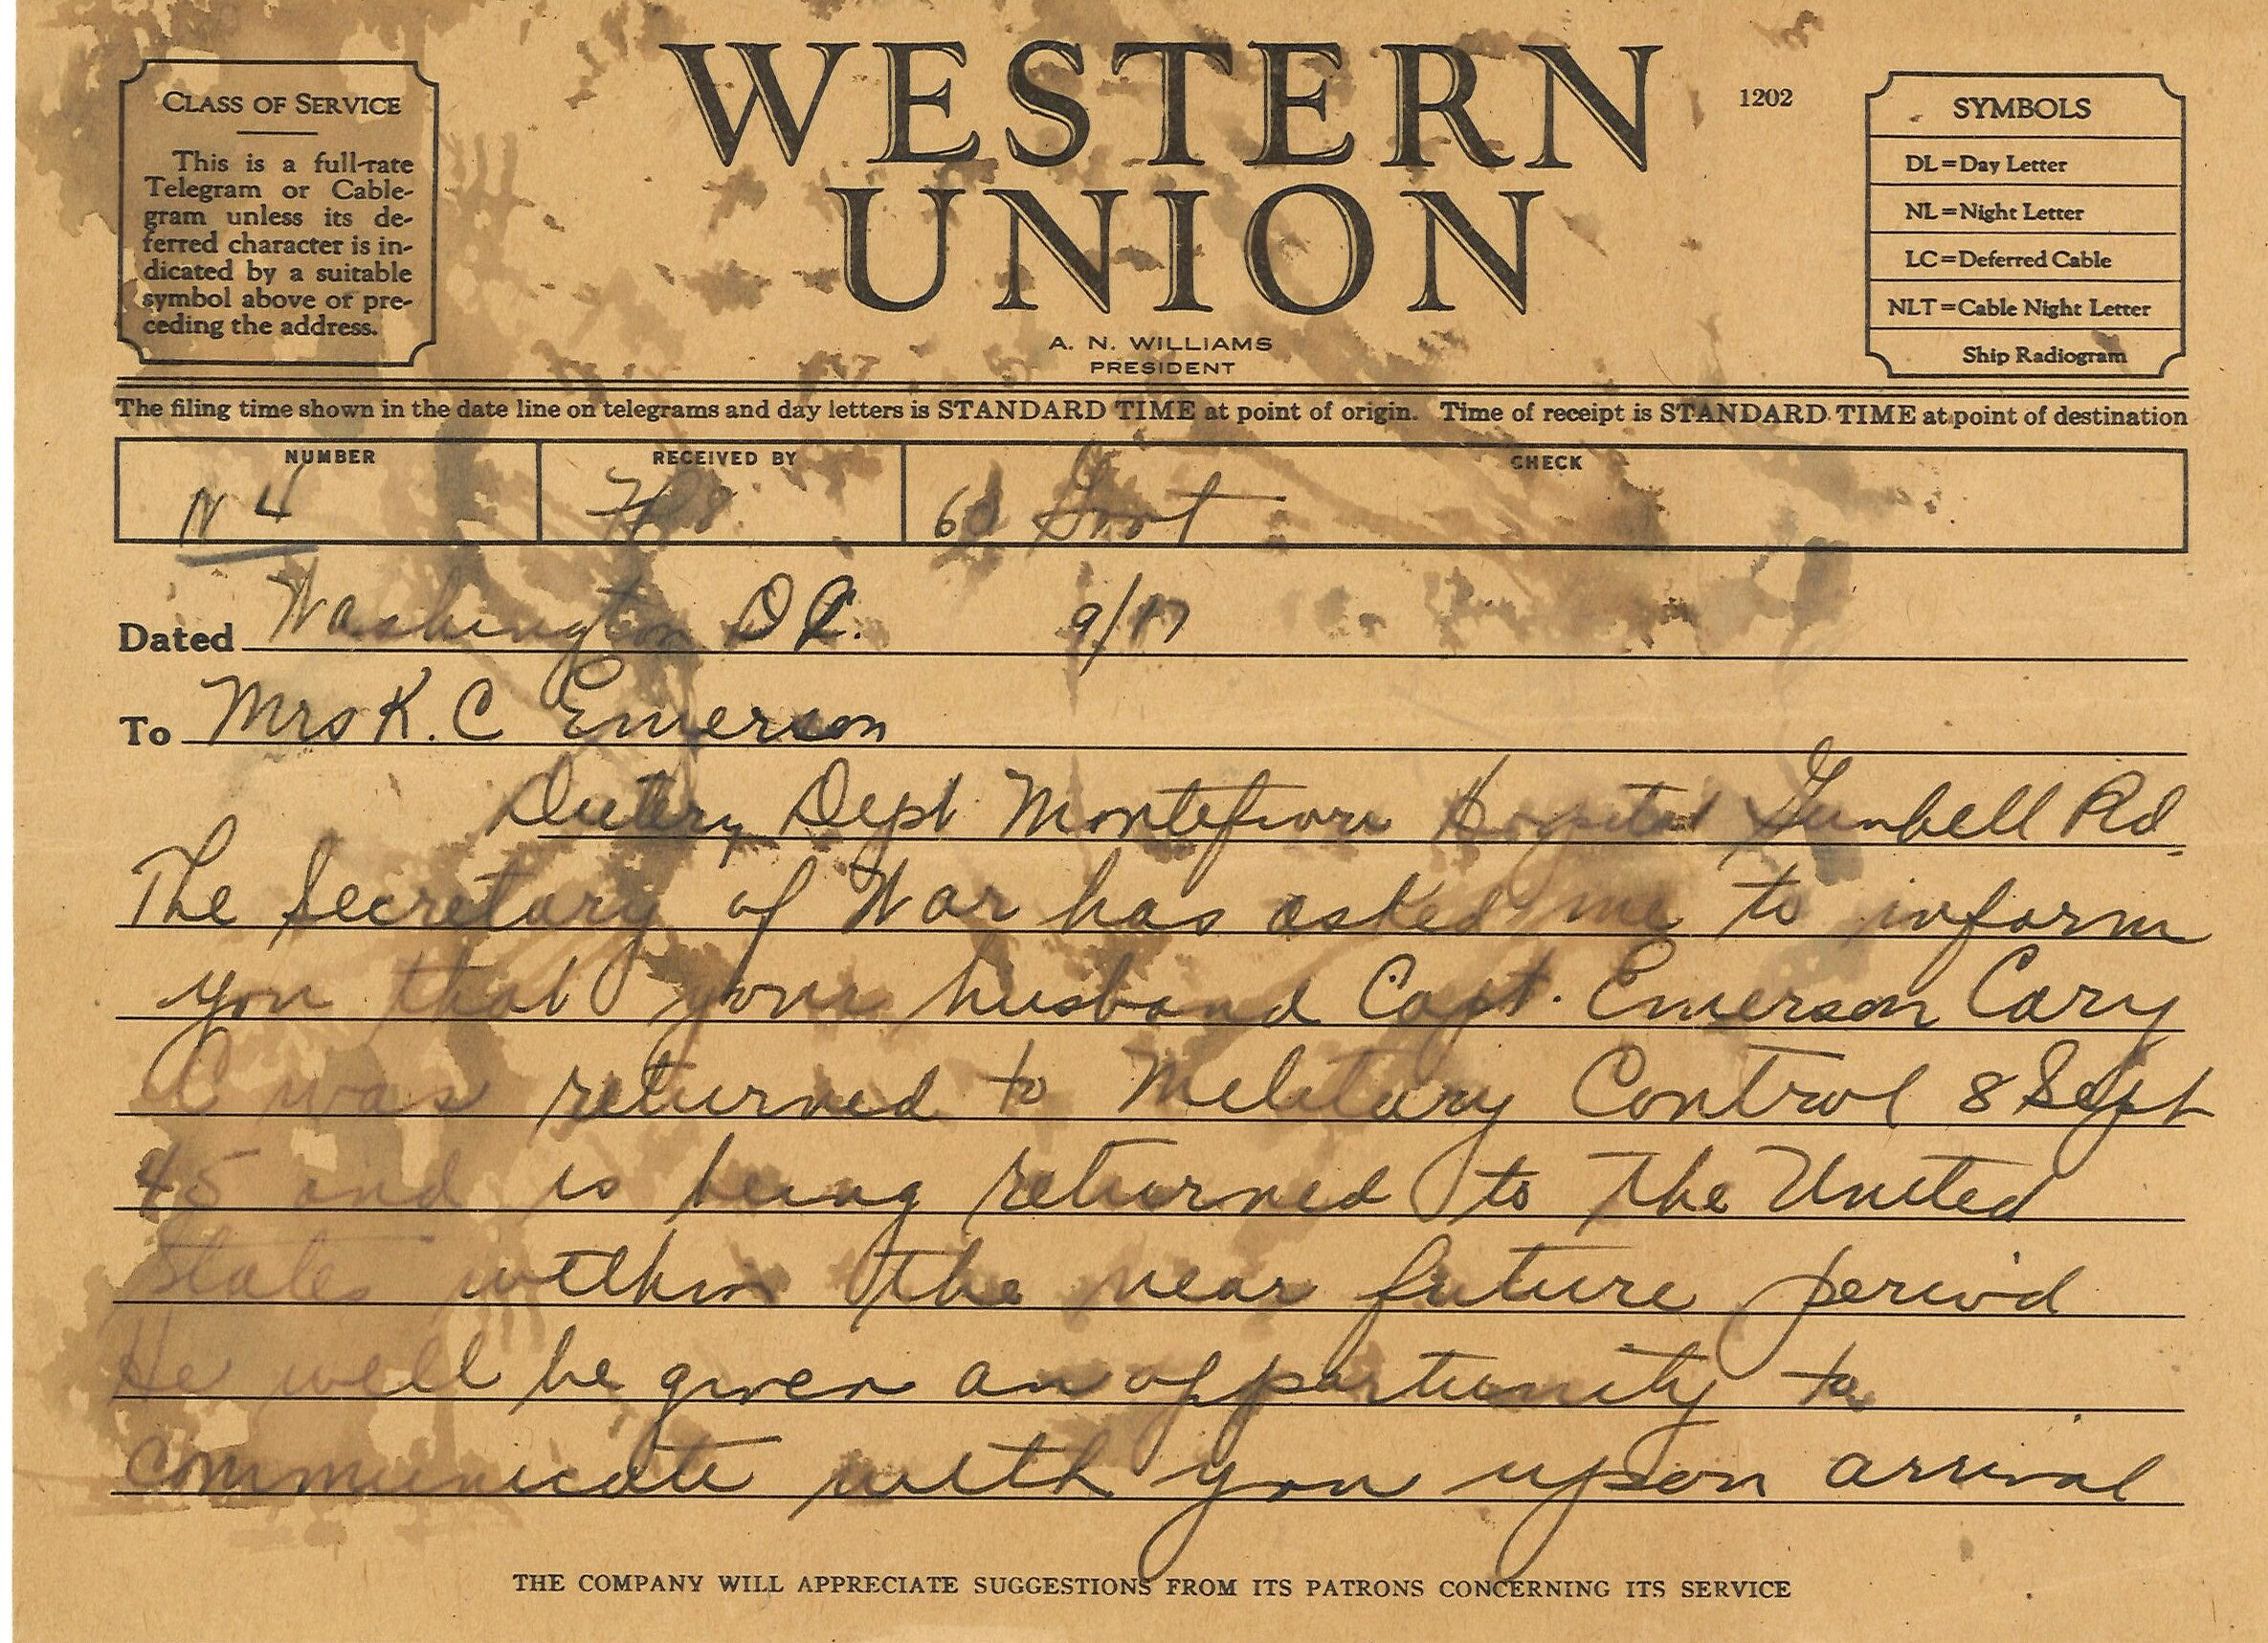 CLASS OF SERVICE
This is a full-rate
Telegram or Cable-
gram unless its de-
ferred character is in-
dicated by a suitable
symbol above or pre-
ceding the address.
WESTERN
UNION
A. N. WILLIAMS
PRESIDENT
1202
SYMBOLS
DL=Day Letter
NL=Night Letter
LC=Deferred Cable
NLT=Cable Night Letter
Ship Radiogram
The filing time shown in the date line on telegrams and day letters is STANDARD TIME at point of origin. Time of receipt is STANDARD TIME at point of destination
NUMBER RECEIVED BY CHECK
N 4 Govt
Dated Washington DC. 9/17
To Mrs K. C Emerson
Dietery Dept Montefiore Hospital Gunhell Rd
The Secretary of War has asked me to inform
you that your husband Capt. Emerson Cary
C was returned to Military Control 8 Sept
45 and is being returned to The United
States within the near future period
He will be given an opportunity to
communicate with you upon arrival
THE COMPANY WILL APPRECIATE SUGGESTIONS FROM ITS PATRONS CONCERNING ITS SERVICE